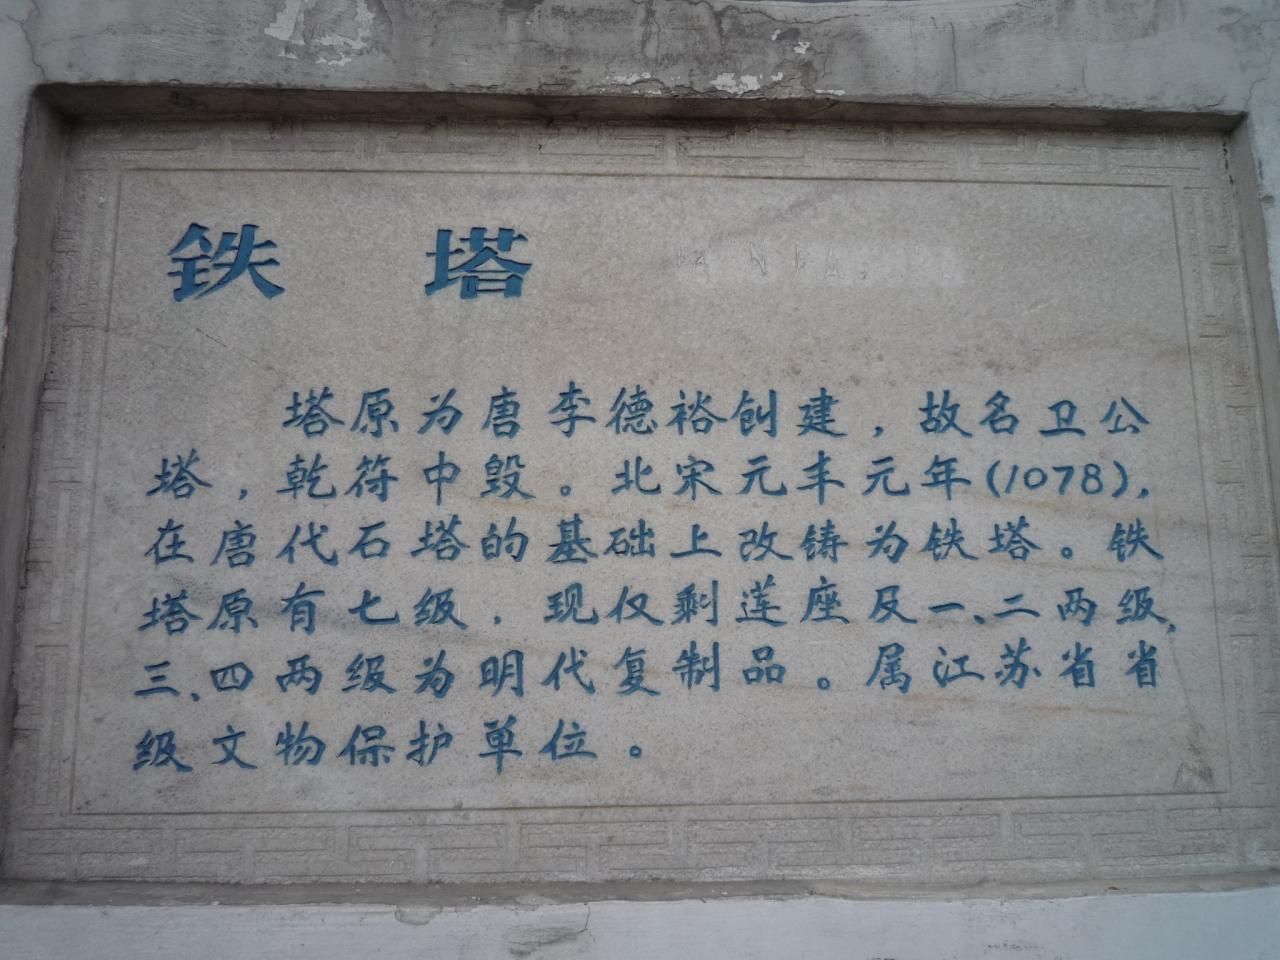 铁塔
塔原为唐李德裕创建，故名卫公
塔，乾符中毁。北宋元丰元年(1078)，
在唐代石塔的基础上改铸为铁塔。铁
塔原有七级，现仅剩莲座及一、二两级，
三、四两级为明代复制品。属江苏省省
级文物保护单位。